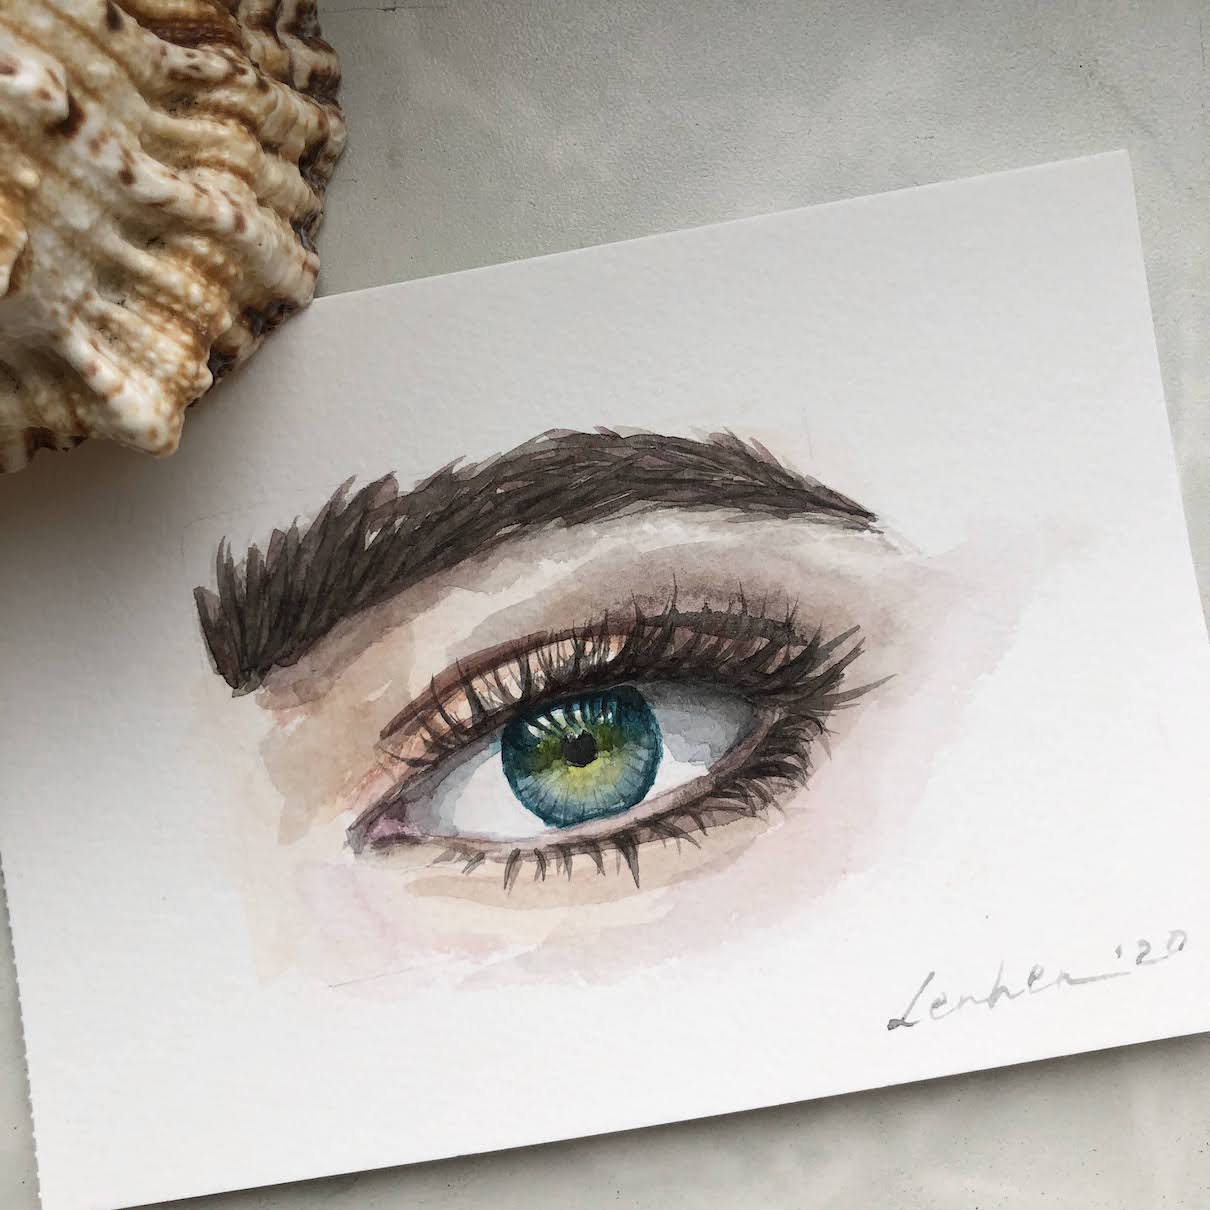 Lenhen '20